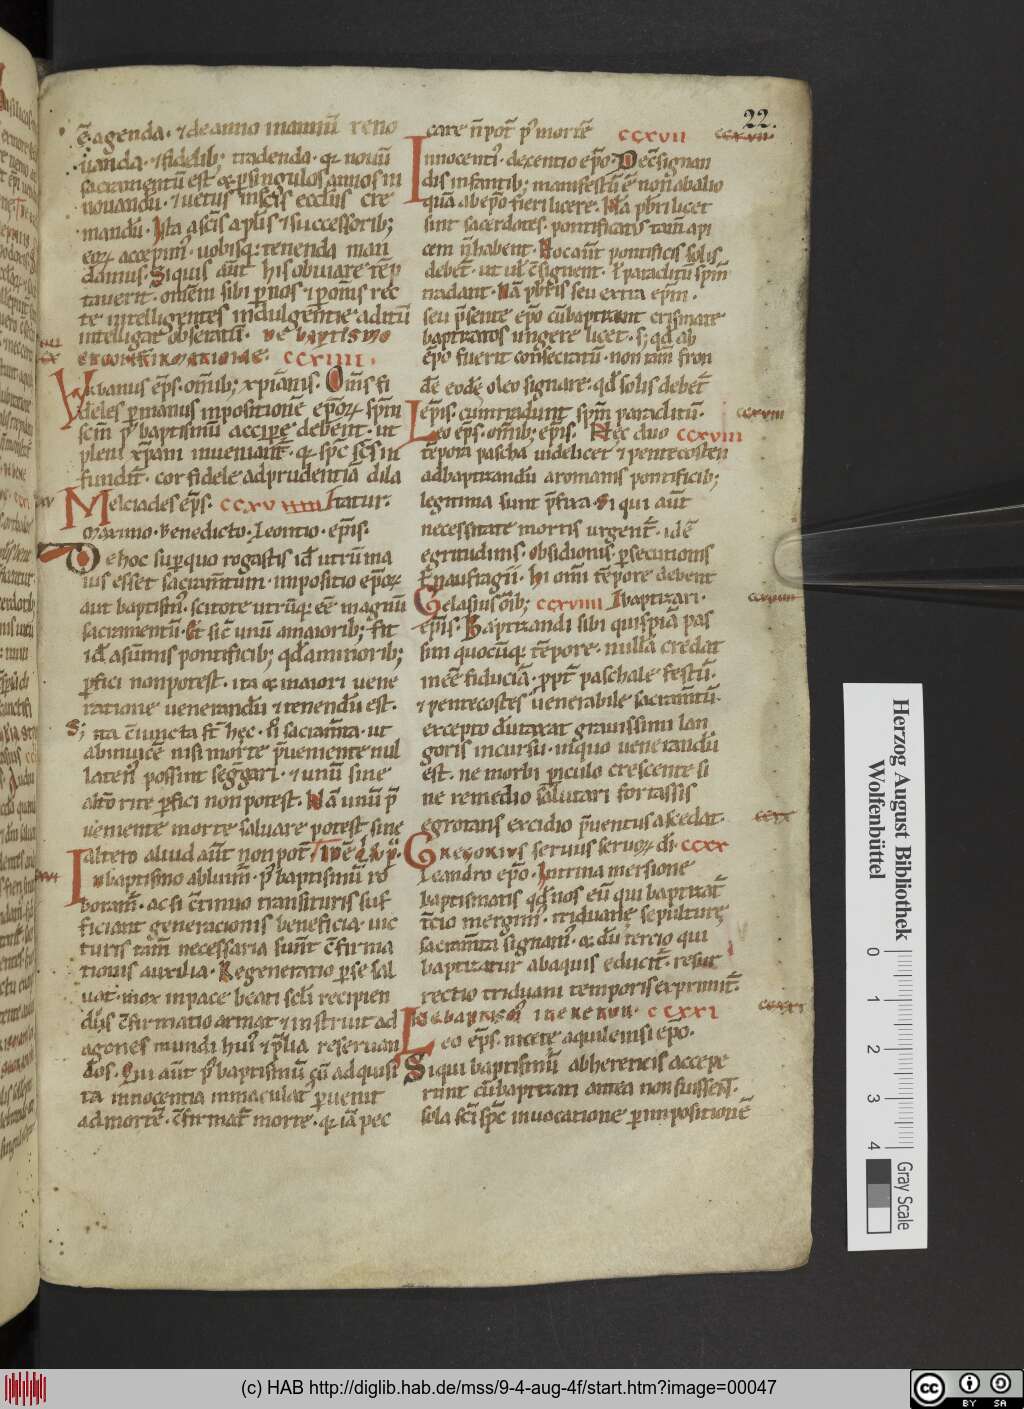 22.
ē agenda · ⁊ de anno in annū reno
uanda · ⁊ fidelib; tradenda · qꝛ nouū
sacramentū est · qꝛ ꝑ singulos annos in
nouandū · ⁊ uetus in scīs ecclīis cre
mandū. Ista a scīs aplīs ⁊ successorib;
eoꝝ accepim᾽ · uobisq; tenenda man
damus. Siquis aūt his obuiare tēp
tauerit · omēm sibi ꝑ nos ⁊ ꝑ om̄s rec
te intelligentes indulgentie aditū
intelligat obseratū. De baptismo
et confirmatione. ccxiiii.
Vrbanus ep̄s. om̄ib; xpīanis. Om̄s fi
deles ꝑ manus inpositionē ep̄oꝝ sp̄m
sc̄m p᾽ baptismū accipe᾽ debent · ut
pleni xp̄iani inueniant᾽ · qꝛ sp̄c sc̄s in
fundit᾽ · cor fidele ad prudentiā dila
Melciades ep̄s. ccxv tatur.
Marino · Benedicto · Leontio · ep̄is.
De hoc suꝑ quo rogastis id ē utrū ma
ius esset sacram̄tum · impositio ep̄oꝝ
aut baptism᾽ · scitote utrūq; eē magnū
sacramentū. Et sic᾽ unū a maiorib; fit
id ē a sūmis pontificib; qd̄ a minorib;
ꝑfici non potest · ita ⁊ maiori uene
ratione uenerandū ⁊ tenendū est.
S; ita c̄iuncta st̄ hęc · ii sacram̄ta · ut
ab inuicē nisi morte p̄ueniente nul
laten᾽ possint seg̃gari · ⁊ unū sine
alto᾽ rite ꝑfici non potest. Nā unū p̄
ueniente morte saluare potest sine
altero aliud aūt non pot᾽
In baptismo abluim᾽ · p᾽ baptismū ro
boram᾽ · ac si c̄tinuo transituris suf
ficiant generacionis beneficia · uic
turis tam̄ necessaria sunt c̄firma
tionis auxilia · Regeneratio ꝑ se sal
uat · mox in pace beati sc̄li recipien
dus c̄firmatio armat ⁊ instruit ad
agones mundi hui᾽ ⁊ p̄lia reseruan
dos. Qui aūt p᾽ baptismū cū adquisi
ta innocentia inmaculat᾽ ꝑuenit
ad mortē · c̄firmat᾽ morte · qꝛ iā pec
care n̄ pot᾽ p᾽ mortē ccxvii
Innocenti᾽ · decentio ep̄o. De c̄signan
dis infantib; manifestū ē non ab alio
quā ab ep̄o fieri licere. Nā pbr̄i licet
sint sacerdotes · pontificat᾽ tam̄ api
cem n̄ habent. Hoc aūt pontificis solis
debet᾽ · ut ul̄ c̄signent · ł paraclitū sp̄m
tradant. Nā pbr̄is seu extra ep̄m ·
seu p̄sente ep̄o cū baptizant crismate
baptizatos ungere licet · s; qd̄ ab
ep̄o fuerit consecratū · non tam̄ fron
dē eodē oleo signare · qd̄ solis debet᾽
ep̄is · cum tradunt sp̄m paraclitū.
Leo ep̄s. om̄ib; ep̄is. Hęc duo ccxviii
tēpora pascha uidelicet ⁊ pentecosten
ad baptizandū a romanis pontificib;
legitima sunt p̄fixa. Si qui aūt
necessitate mortis urgent᾽ · id ē
egritudinis · obsidionis · ꝑsecutionis
⁊ naufragii · hi omī tēpore debent
Gelasius om̄ib; ccxviiii baptizari.
ep̄is. Baptizandi sibi quispiā pas
sim quocūq; tēpore · nullā credat
inesse fiduciā · p̄pt᾽ paschale festū
⁊ pentecostes uenerabile sacram̄tū.
excepto dūtaxat grauissimi lan
goris incursu · in quo uenerandū
est · ne morbi ꝑiculo crescente si
ne remedio salutari fortassis
egrotans excidio p̄uentus abscedat.
Gregorius seruus seruoꝝ dī. ccxx
Leandro ep̄o. In trina mersione
baptismatis qd̄ nos eū qui baptizat᾽
t̄cio mergim᾽ · triduane sepulturę
sacram̄ta signam᾽ · ⁊ dū tercio qui
baptizatur ab aquis educit᾽ · resur
rectio triduani temporis exprimit᾽.
De baptism᾽ iterenun. ccxxi
Leo ep̄s. nicete aquileiensi ep̄o.
Si qui baptismū ab hereticis accepe
runt cū baptizati antea non fuissent.
sola sc̄i sp̄c inuocatione ꝑ inpositionē
Herzog August Bibliothek
Wolfenbüttel
0 1 2 3 4
Gray Scale
(c) HAB http://diglib.hab.de/mss/9-4-aug-4f/start.htm?image=00047
cc BY SA